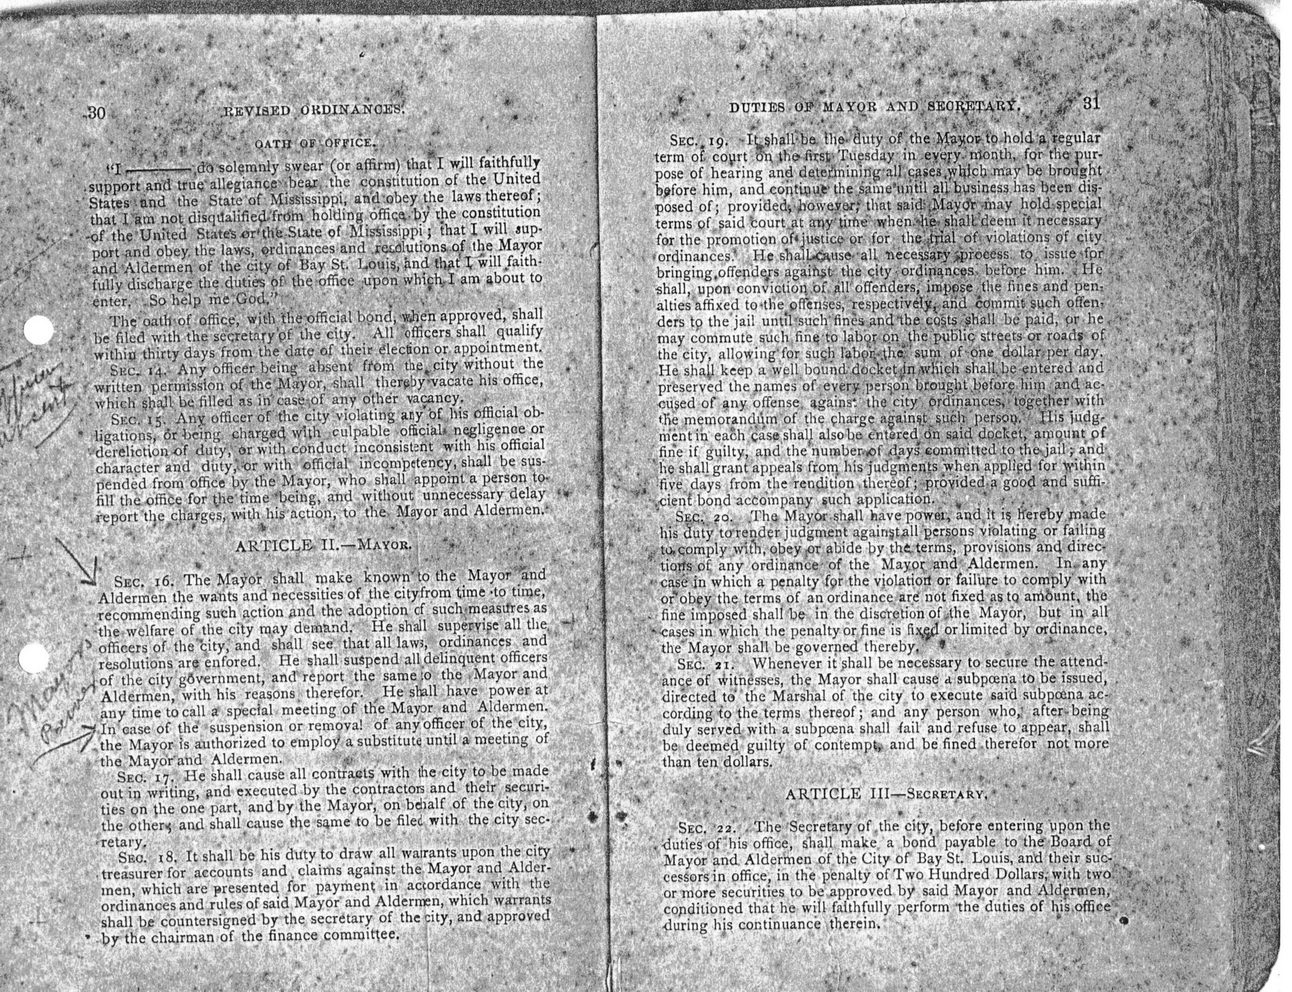 30 REVISED ORDINANCES.
OATH OF OFFICE.
"I ——— do solemnly swear (or affirm) that I will faithfully
support and true allegiance bear the constitution of the United
States and the State of Mississippi, and obey the laws thereof;
that I am not disqualified from holding office by the constitution
of the United States or the State of Mississippi; that I will sup-
port and obey the laws, ordinances and resolutions of the Mayor
and Aldermen of the city of Bay St. Louis, and that I will faith-
fully discharge the duties of the office upon which I am about to
enter. So help me God."
The oath of office, with the official bond, when approved, shall
be filed with the secretary of the city. All officers shall qualify
within thirty days from the date of their election or appointment.
SEC. 14. Any officer being absent from the city without the
written permission of the Mayor, shall thereby vacate his office,
which shall be filled as in case of any other vacancy.
SEC. 15. Any officer of the city violating any of his official ob-
ligations, or being charged with culpable official negligence or
dereliction of duty, or with conduct inconsistent with his official
character and duty, or with official incompetency, shall be sus-
pended from office by the Mayor, who shall appoint a person to
fill the office for the time being, and without unnecessary delay
report the charges, with his action, to the Mayor and Aldermen.
ARTICLE II.—MAYOR.
SEC. 16. The Mayor shall make known to the Mayor and
Aldermen the wants and necessities of the city from time to time,
recommending such action and the adoption of such measures as
the welfare of the city may demand. He shall supervise all the
officers of the city, and shall see that all laws, ordinances and
resolutions are enfored. He shall suspend all delinquent officers
of the city government, and report the same to the Mayor and
Aldermen, with his reasons therefor. He shall have power at
any time to call a special meeting of the Mayor and Aldermen.
In case of the suspension or removal of any officer of the city,
the Mayor is authorized to employ a substitute until a meeting of
the Mayor and Aldermen.
SEC. 17. He shall cause all contracts with the city to be made
out in writing, and executed by the contractors and their securi-
ties on the one part, and by the Mayor, on behalf of the city, on
the other; and shall cause the same to be filed with the city sec-
retary.
SEC. 18. It shall be his duty to draw all warrants upon the city
treasurer for accounts and claims against the Mayor and Alder-
men, which are presented for payment in accordance with the
ordinances and rules of said Mayor and Aldermen, which warrants
shall be countersigned by the secretary of the city, and approved
by the chairman of the finance committee.
Officer
absent
Mayors
Powers
DUTIES OF MAYOR AND SECRETARY. 31
SEC. 19. It shall be the duty of the Mayor to hold a regular
term of court on the first Tuesday in every month, for the pur-
pose of hearing and determining all cases which may be brought
before him, and continue the same until all business has been dis-
posed of; provided, however, that said Mayor may hold special
terms of said court at any time when he shall deem it necessary
for the promotion of justice or for the trial of violations of city
ordinances. He shall cause all necessary process to issue for
bringing offenders against the city ordinances before him. He
shall, upon conviction of all offenders, impose the fines and pen-
alties affixed to the offenses, respectively, and commit such offen-
ders to the jail until such fines and the costs shall be paid, or he
may commute such fine to labor on the public streets or roads of
the city, allowing for such labor the sum of one dollar per day.
He shall keep a well bound docket in which shall be entered and
preserved the names of every person brought before him and ac-
cused of any offense against the city ordinances, together with
the memorandum of the charge against such person. His judg-
ment in each case shall also be entered on said docket, amount of
fine if guilty, and the number of days committed to the jail; and
he shall grant appeals from his judgments when applied for within
five days from the rendition thereof; provided a good and suffi-
cient bond accompany such application.
SEC. 20. The Mayor shall have power, and it is hereby made
his duty to render judgment against all persons violating or failing
to comply with, obey or abide by the terms, provisions and direc-
tions of any ordinance of the Mayor and Aldermen. In any
case in which a penalty for the violation or failure to comply with
or obey the terms of an ordinance are not fixed as to amount, the
fine imposed shall be in the discretion of the Mayor, but in all
cases in which the penalty or fine is fixed or limited by ordinance,
the Mayor shall be governed thereby.
SEC. 21. Whenever it shall be necessary to secure the attend-
ance of witnesses, the Mayor shall cause a subpœna to be issued,
directed to the Marshal of the city to execute said subpœna ac-
cording to the terms thereof; and any person who, after being
duly served with a subpœna shall fail and refuse to appear, shall
be deemed guilty of contempt, and be fined therefor not more
than ten dollars.
ARTICLE III—SECRETARY.
SEC. 22. The Secretary of the city, before entering upon the
duties of his office, shall make a bond payable to the Board of
Mayor and Aldermen of the City of Bay St. Louis, and their suc-
cessors in office, in the penalty of Two Hundred Dollars, with two
or more securities to be approved by said Mayor and Aldermen,
conditioned that he will faithfully perform the duties of his office
during his continuance therein.